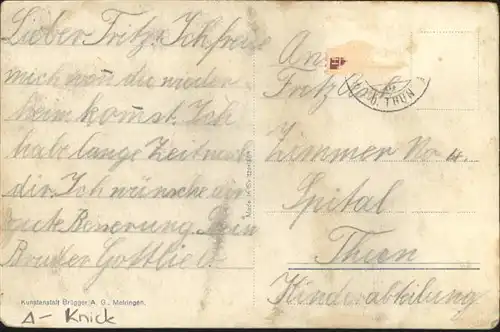 Lieber Fritz! Ich freue
mich wen du wieder
heim komst. Ich
habe lange Zeit nach
dir. Ich wünsche dir
gute Besserung. Dein
Bruder Gottlieb.
Kunstanstalt Brügger A. G., Meiringen.
A- Knick
Made in Switzerland
An
Fritz
THUN
Zimmer No 4.
Spital
Thun
Kinderabteilung